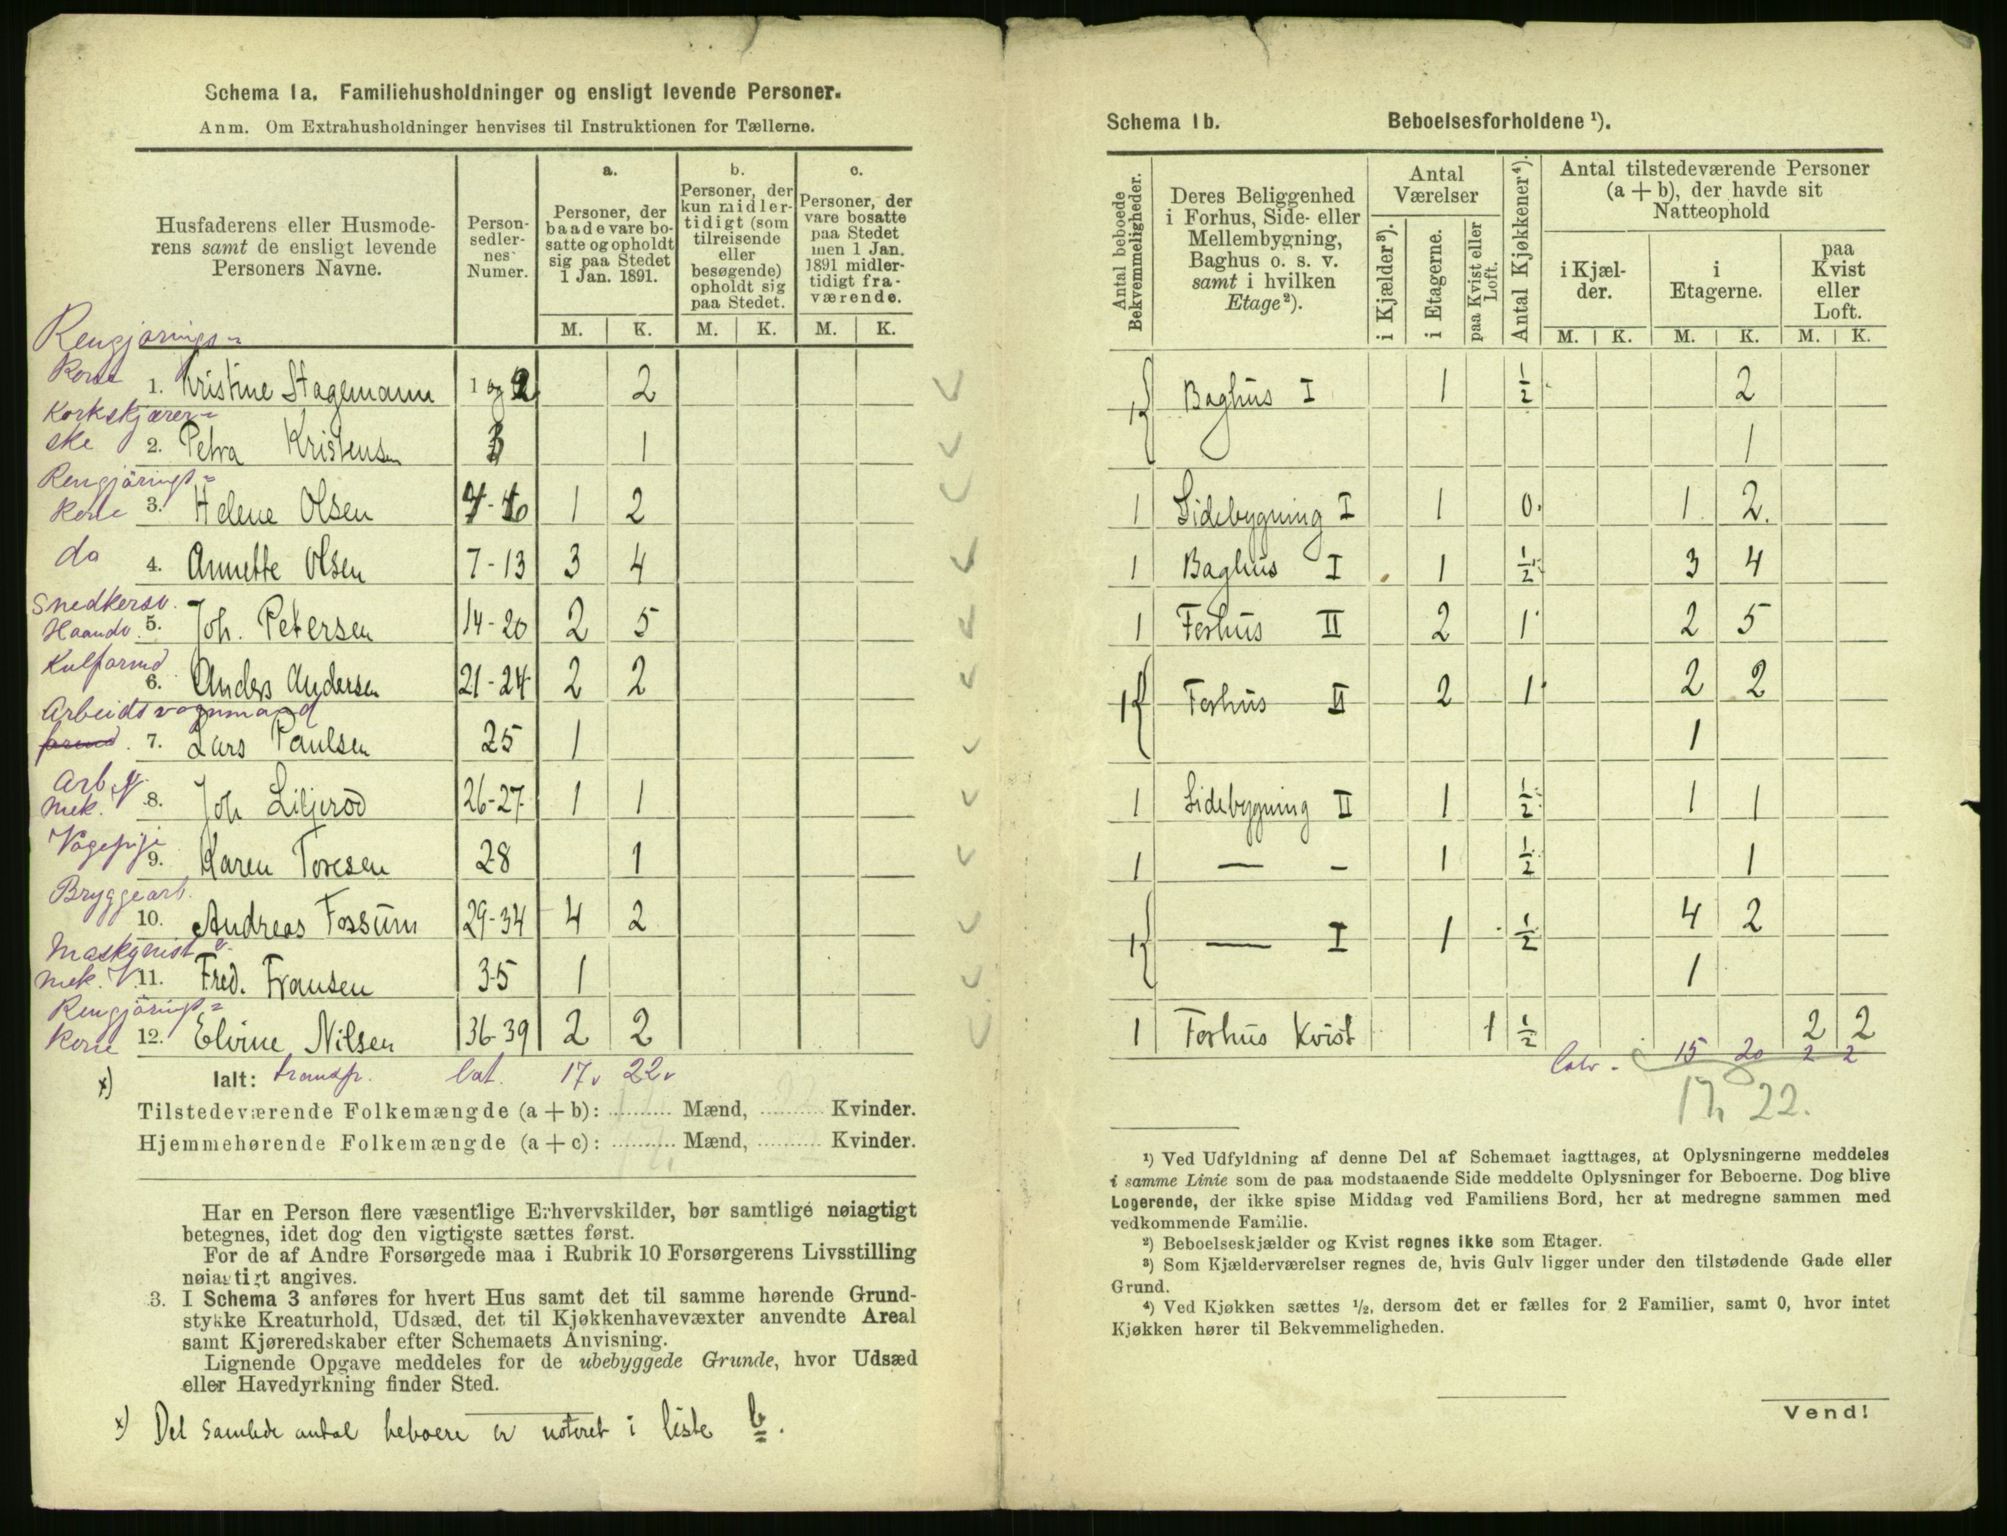 Schema 1a. Familiehusholdninger og ensligt levende Personer.
Anm. Om Extrahusholdninger henvises til Instruktionen for Tællerne.
Husfaderens eller Husmoderens samt de ensligt levende Personers Navne.
Personsedlernes Numer.
a.
Personer, der baade vare bosatte og opholdt sig paa Stedet 1 Jan. 1891.
b.
Personer, der kun midlertidigt (som tilreisende eller besøgende) opholdt sig paa Stedet.
c.
Personer, der vare bosatte paa Stedet men 1 Jan. 1891 midlertidigt fraværende.
M. K. M. K. M. K.
Rengjørings=
kone 1. Kristine Stagemann 1 og 2 2
Korkskjærer=
ske 2. Petra Kristensen 3 1
Rengjørings=
kone 3. Helene Olsen 4-6 1 2
do 4. Annette Olsen 7-13 3 4
Snedkersv.
Haandv. 5. Joh. Petersen 14-20 2 5
Kulformd
6. Anders Andersen 21-24 2 2
Arbeidsvognmand
formd. 7. Lars Paulsen 25 1
Arb.
mek. V. 8. Joh Liljerod 26-27 1 1
Vagepige
9. Karen Toresen 28 1
Bryggearb.
10. Andreas Fossum 29-34 4 2
Maskinist v.
mek. V. 11. Fred. Fransen 35 1
Rengjørings=
kone 12. Elvine Nilsen 36-39 2 2
x) Ialt: transp. lat. 17 22
Tilstedeværende Folkemængde (a + b): Mænd, Kvinder.
Hjemmehørende Folkemængde (a + c): Mænd, Kvinder.
Har en Person flere væsentlige Erhvervskilder, bør samtlige nøiagtigt
betegnes, idet dog den vigtigste sættes først.
For de af Andre Forsørgede maa i Rubrik 10 Forsørgerens Livsstilling
nøiagtigt angives.
3. I Schema 3 anføres for hvert Hus samt det til samme hørende Grund-
stykke Kreaturhold, Udsæd, det til Kjøkkenhavevæxter anvendte Areal
samt Kjøreredskaber efter Schemaets Anvisning.
Lignende Opgave meddeles for de ubebyggede Grunde, hvor Udsæd
eller Havedyrkning finder Sted.
x) Det samlede antal beboere er noteret i liste b.
Schema 1b. Beboelsesforholdene ¹).
Antal beboede Bekvemmeligheder.
Deres Beliggenhed i Forhus, Side- eller Mellembygning, Baghus o. s. v. samt i hvilken Etage²).
Antal Værelser
i Kjælder³).
i Etagerne.
paa Kvist eller Loft.
Antal Kjøkkener⁴).
Antal tilstedeværende Personer (a + b), der havde sit Natteophold
i Kjælder.
i Etagerne.
paa Kvist eller Loft.
M. K. M. K. M. K.
1 Baghus I 1 ½ 2
1
1 Sidebygning I 1 0 1 2
1 Baghus I 1 ½ 3 4
1 Forhus II 2 1 2 5
1 Forhus II 2 1 2 2
1
1 Sidebygning II 1 ½ 1 1
1 — - 1 ½ 1
1 — I 1 ½ 4 2
1
1 Forhus Kvist 1 ½ 2 2
15 20 2 2
17 22.
¹) Ved Udfyldning af denne Del af Schemaet iagttages, at Oplysningerne meddeles
i samme Linie som de paa modstaaende Side meddelte Oplysninger for Beboerne. Dog blive
Logerende, der ikke spise Middag ved Familiens Bord, her at medregne sammen med
vedkommende Familie.
²) Beboelseskjælder og Kvist regnes ikke som Etager.
³) Som Kjælderværelser regnes de, hvis Gulv ligger under den tilstødende Gade eller
Grund.
⁴) Ved Kjøkken sættes ½, dersom det er fælles for 2 Familier, samt 0, hvor intet
Kjøkken hører til Bekvemmeligheden.
Vend!